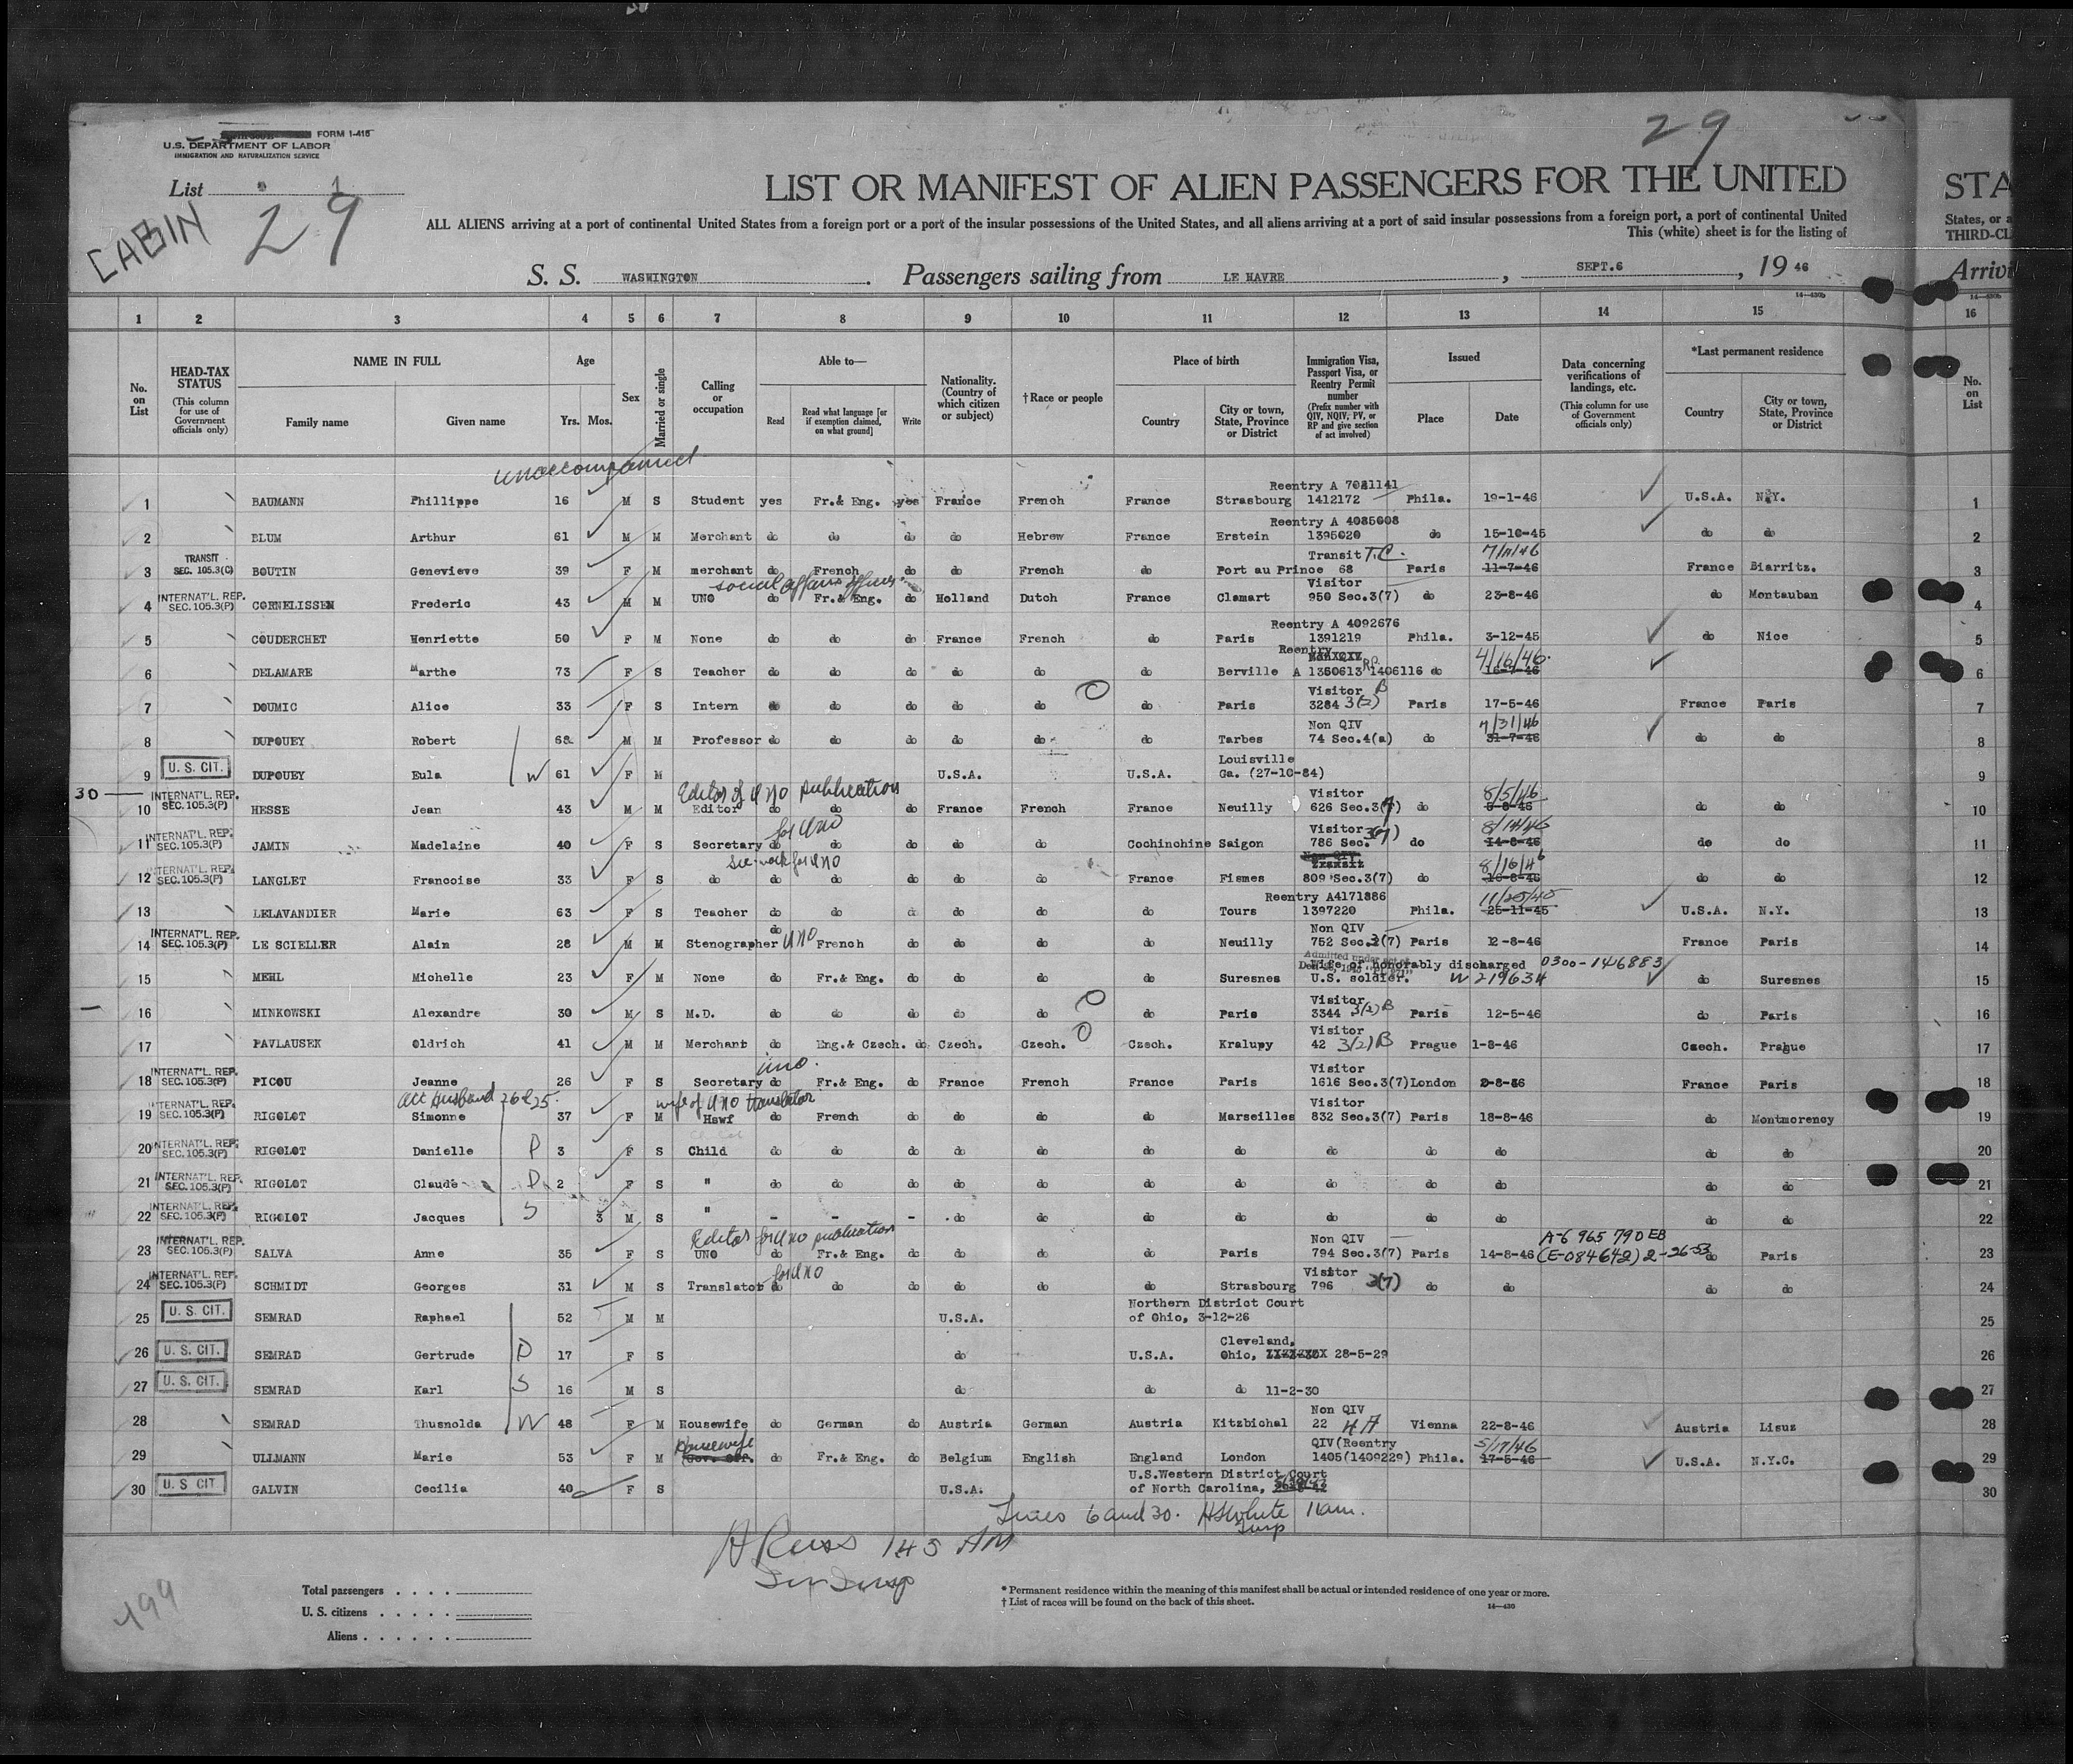 FORM I-415
U.S. DEPARTMENT OF LABOR
IMMIGRATION AND NATURALIZATION SERVICE
List 1
29
29
CABIN
LIST OR MANIFEST OF ALIEN PASSENGERS FOR THE UNITED STA
ALL ALIENS arriving at a port of continental United States from a foreign port or a port of the insular possessions of the United States, and all aliens arriving at a port of said insular possessions from a foreign port, a port of continental United States, or a
This (white) sheet is for the listing of THIRD-CL
S. S. WASHINGTON. Passengers sailing from LE HAVRE, SEPT.6, 19 46 Arrivi
14—430b
1 2 3 4 5 6 7 8 9 10 11 12 13 14 15 16
No. on List
HEAD-TAX STATUS (This column for use of Government officials only)
NAME IN FULL Family name Given name
Age Yrs. Mos.
Sex
Married or single
Calling or occupation
Able to— Read Read what language [or if exemption claimed, on what ground] Write
Nationality. (Country of which citizen or subject)
†Race or people
Place of birth Country City or town, State, Province or District
Immigration Visa, Passport Visa, or Reentry Permit number (Prefix number with QIV, NQIV, PV, or RP and give section of act involved)
Issued Place Date
Data concerning verifications of landings, etc. (This column for use of Government officials only)
*Last permanent residence Country City or town, State, Province or District
No. on List
unaccompanied
Reentry A 7021141
1 BAUMANN Phillippe 16 M S Student yes Fr.& Eng. yes France French France Strasbourg 1412172 Phila. 19-1-46 U.S.A. N.Y. 1
Reentry A 4085008
2 BLUM Arthur 61 M M Merchant do do do do Hebrew France Erstein 1395020 do 15-10-45 do do 2
TRANSIT SEC. 105.3(C) Transit T.C. 7/11/46
3 BOUTIN Genevieve 39 F M merchant do French do do French do Port au Prince 68 Paris 11-7-46 France Biarritz. 3
INTERNAT'L. REP. SEC. 105.3(P) social affairs officer Visitor
4 CORNELISSEN Frederic 43 M M UNO do Fr.& Eng. do Holland Dutch France Clamart 950 Sec.3(7) do 23-8-46 do Montauban 4
Reentry A 4092676
5 COUDERCHET Henriette 50 F M None do do do France French do Paris 1391219 Phila. 3-12-45 do Nice 5
Reentry RP 4/16/46
6 DELAMARE Marthe 73 F S Teacher do do do do do do Berville A 1360613 1406116 do 16-7-46 6
Visitor B
7 DOUMIC Alice 33 F S Intern do do do do do do Paris 3284 3(2) Paris 17-5-46 France Paris 7
Non QIV 7/31/46
8 DUPOUEY Robert 68 M M Professor do do do do do do Tarbes 74 Sec.4(a) do 31-7-46 do do 8
U. S. CIT. Louisville
9 DUPOUEY Eula W 61 F M U.S.A. U.S.A. Ga. (27-10-84) 9
30 INTERNAT'L. REP. SEC. 105.3(P) Editor of UNO publication Visitor 8/5/46
10 HESSE Jean 43 M M Editor do do do France French France Neuilly 626 Sec.3(7) do 5-8-46 do do 10
INTERNAT'L. REP. SEC. 105.3(P) for UNO Visitor 3(7) 8/14/46
11 JAMIN Madelaine 40 F S Secretary do do do do do Cochinchine Saigon 786 Sec. do 14-8-46 do do 11
INTERNAT'L. REP. SEC. 105.3(P) Sec. work for UNO Non QIV 8/16/46
12 LANGLET Francoise 33 F S do do do do do do France Fismes 809 Sec.3(7) do 16-8-46 do do 12
Reentry A4171886 11/25/45
13 LELAVANDIER Marie 63 F S Teacher do do do do do do Tours 1397220 Phila. 25-11-45 U.S.A. N.Y. 13
INTERNAT'L. REP. SEC. 105.3(P) do Non QIV
14 LE SCIELLER Alain 28 M M Stenographer UNO French do do do do Neuilly 752 Sec.3(7) Paris 12-8-46 France Paris 14
Wife of honorably discharged 0300-146883
15 MEHL Michelle 23 F M None do Fr.& Eng. do do do do Suresnes U.S. soldier. W 219634 do Suresnes 15
Visitor
16 MINKOWSKI Alexandre 30 M S M.D. do do do do do do Paris 3344 3(2)B Paris 12-5-46 do Paris 16
Visitor
17 PAVLAUSEK Oldrich 41 M M Merchant do Eng.& Czech. do Czech. Czech. Czech. Kralupy 42 3(2)B Prague 1-8-46 Czech. Prague 17
INTERNAT'L. REP. SEC. 105.3(P) uno. Visitor
18 PICOU Jeanne 26 F S Secretary do Fr.& Eng. do France French France Paris 1616 Sec.3(7) London 2-8-46 France Paris 18
INTERNAT'L. REP. SEC. 105.3(P) wife of UNO translator Visitor
19 RIGOLOT Simonne 37 F M Hswf do French do do do do Marseilles 832 Sec.3(7) Paris 18-8-46 do Montmorency 19
INTERNAT'L. REP. SEC. 105.3(P)
20 RIGOLOT Danielle D 3 F S Child do do do do do do do do do do do do 20
INTERNAT'L. REP. SEC. 105.3(P)
21 RIGOLOT Claude D 2 F S " do do do do do do do do do do do do 21
INTERNAT'L. REP. SEC. 105.3(P)
22 RIGOLOT Jacques S 3 M S " - - - do do do do do do do do do 22
INTERNAT'L. REP. SEC. 105.3(P) Editor for UNO publication Non QIV A-6 965 790 EB
23 SALVA Anne 35 F S UNO do Fr.& Eng. do do do do Paris 794 Sec.3(7) Paris 14-8-46 (E-084642) 2-26-53 do Paris 23
INTERNAT'L. REP. SEC. 105.3(P) for UNO Visitor
24 SCHMIDT Georges 31 M S Translator do do do do do do Strasbourg 796 3(7) do do do do 24
U. S. CIT. Northern District Court
25 SEMRAD Raphael 52 M M U.S.A. of Ohio, 3-12-26 25
U. S. CIT. Cleveland,
26 SEMRAD Gertrude D 17 F S do U.S.A. Ohio, 28-5-29 26
U. S. CIT.
27 SEMRAD Karl S 16 M S do do do 11-2-30 27
Non QIV
28 SEMRAD Thusnolda W 48 F M Housewife do German do Austria German Austria Kitzbichal 22 4A Vienna 22-8-46 Austria Lisuz 28
Housewife QIV(Reentry 5/17/46
29 ULLMANN Marie 53 F M Gov. Off. do Fr.& Eng. do Belgium English England London 1405(1409229) Phila. 17-5-46 U.S.A. N.Y.C. 29
U. S CIT. U.S.Western District Court
30 GALVIN Cecilia 40 F S U.S.A. of North Carolina, 30
Lines 6 and 30. HS White 11am.
Insp
145 AM
499
Total passengers . . . .
U. S. citizens . . . . .
Aliens . . . . . .
* Permanent residence within the meaning of this manifest shall be actual or intended residence of one year or more.
† List of races will be found on the back of this sheet.
14—430